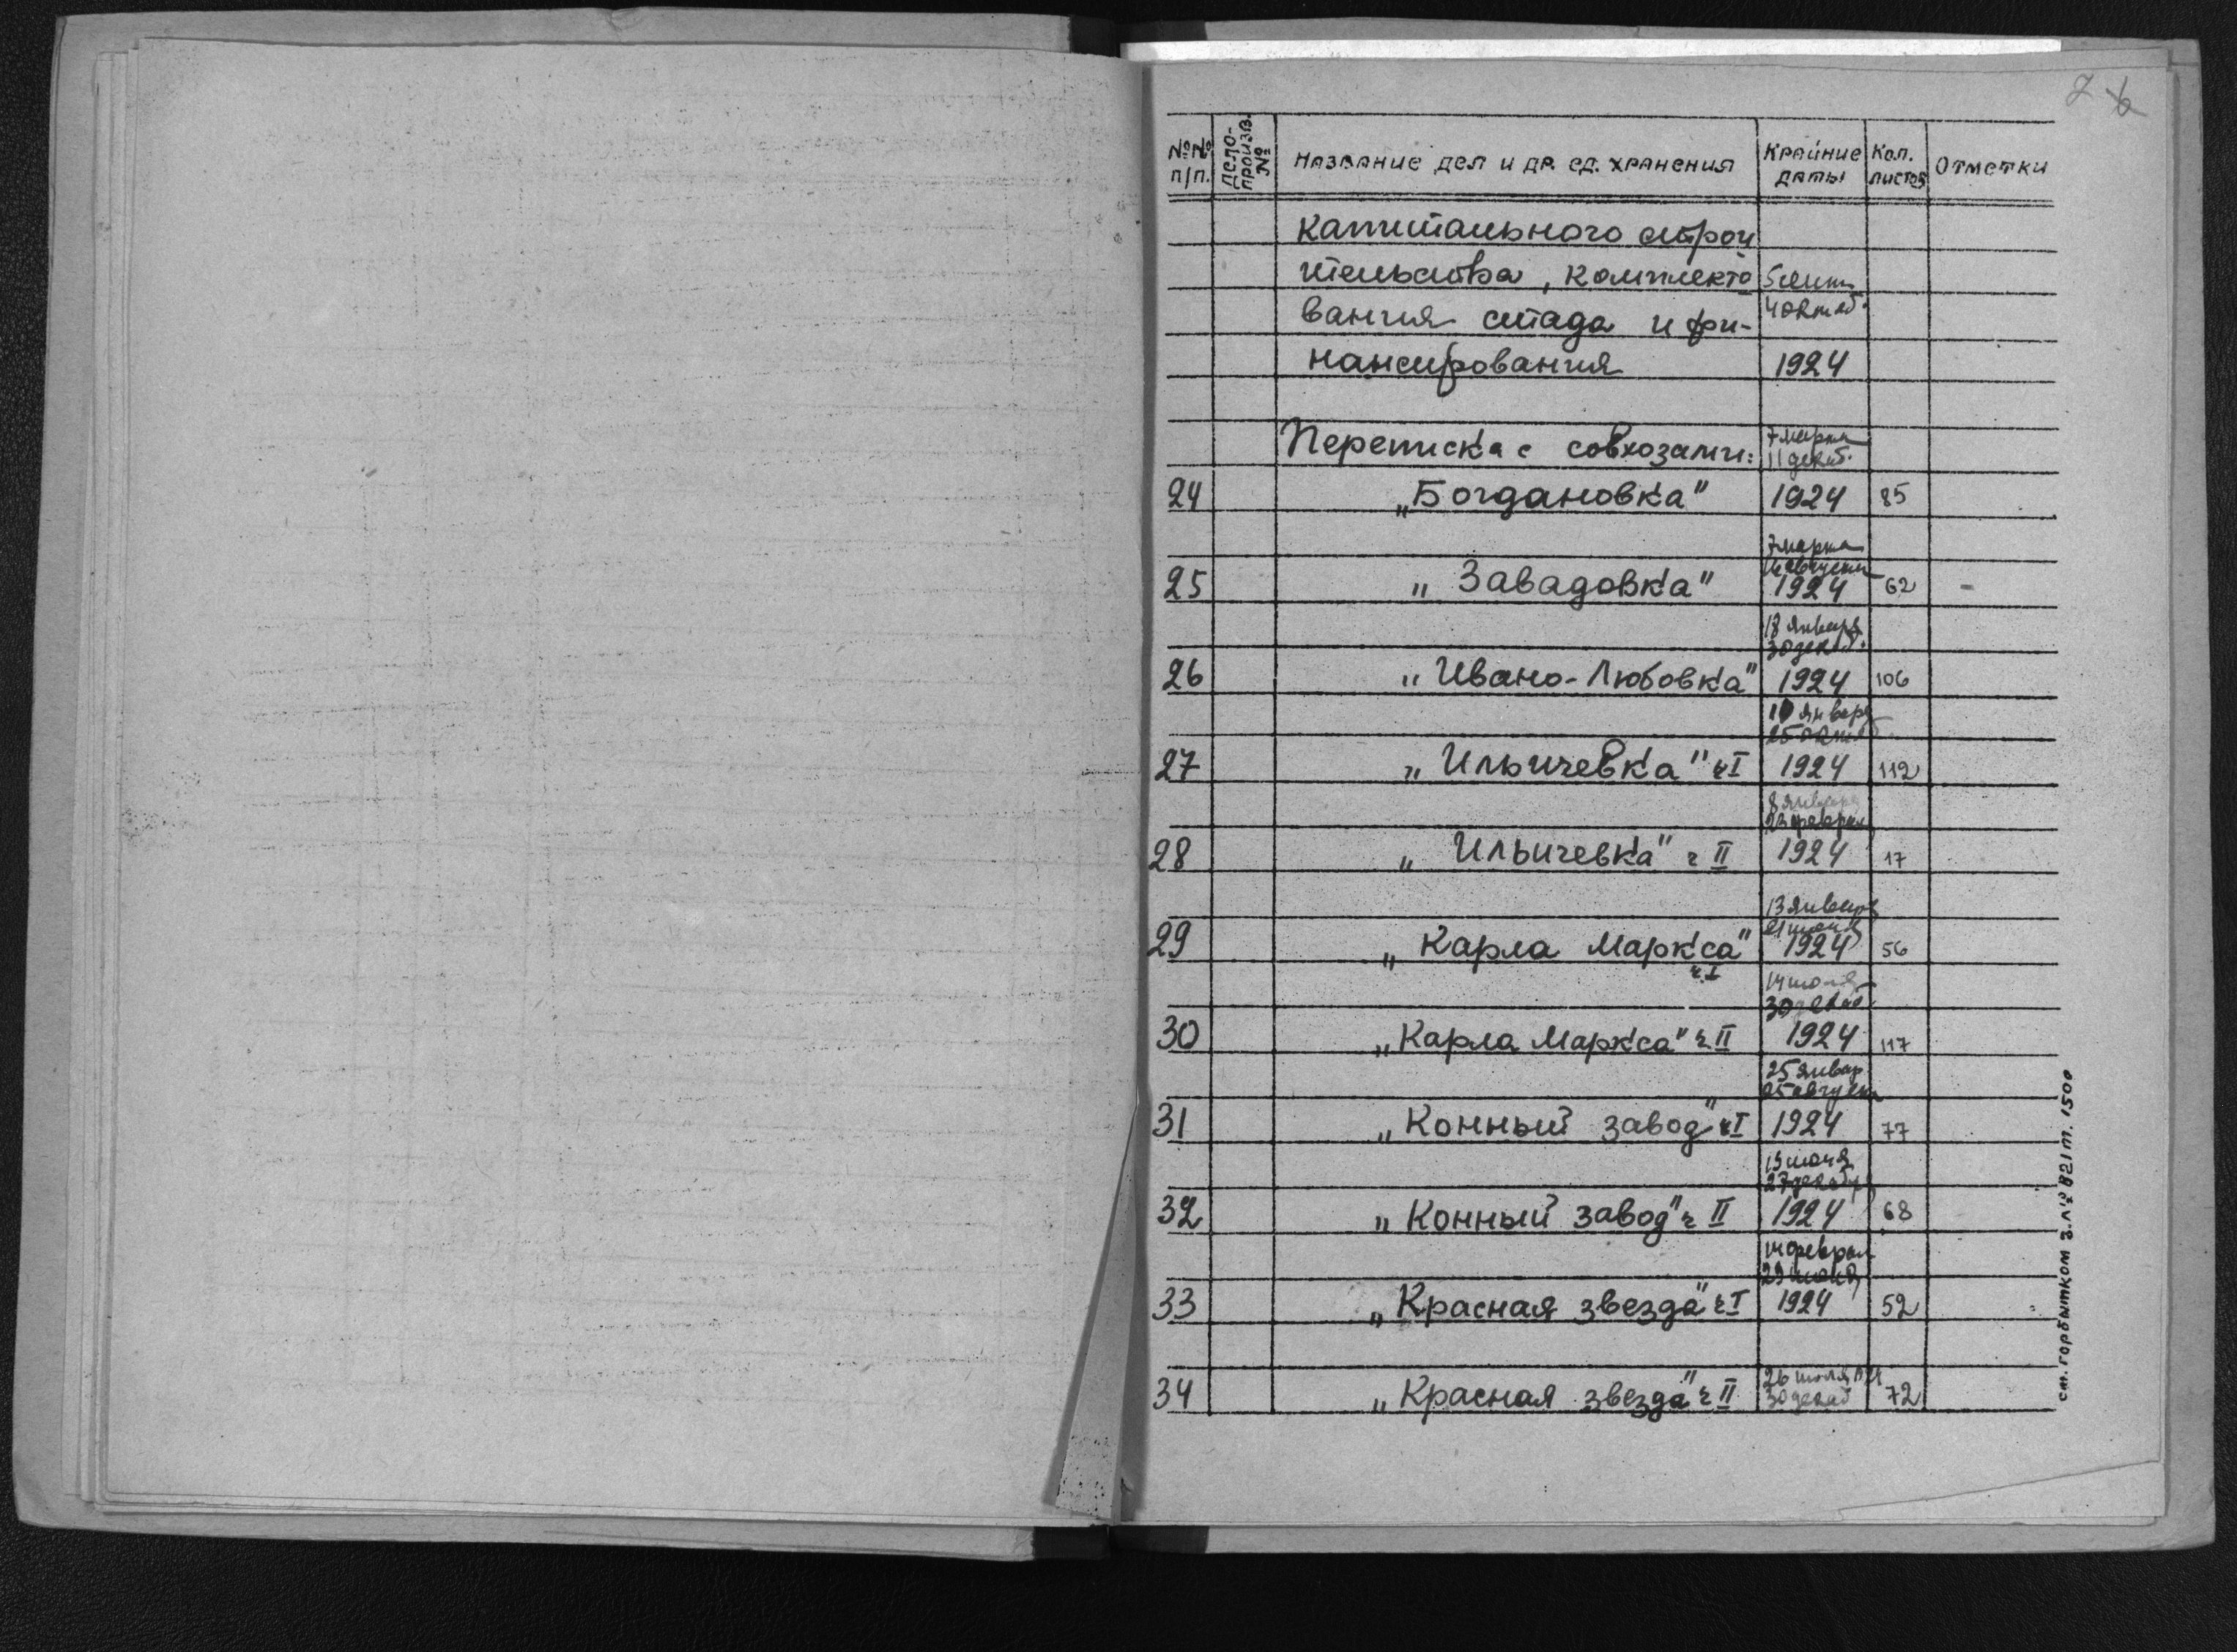 7 6
№№ п/п. Дело-произв. № Название дел и др. ед. хранения Крайние даты Кол. листов Отметки
капитального строи
тельства, комплекто 5
вания стада и фи- 4 октяб.
нансирования 1924
Переписка с совхозами: 7 марта
11 декаб.
24 „Богдановка" 1924 85
7 марта
августа
25 „Завадовка" 1924 62
18 января
30 декаб.
26 „Ивано-Любовка" 1924 106
января
25
27 „Ильичевка" ч I 1924 112
8 января
23 февраля
28 „Ильичевка" ч II 1924 17
13 января
29 „Карла Маркса" 1924 56
ч I
14 июля
30 декаб.
30 „Карла Маркса" ч II 1924 117
25 январ
25 августа
31 „Конный завод" ч I 1924 77
27 декабря
32 „Конный завод" ч II 1924 68
14 феврал
29
33 „Красная звезда" ч I 1924 52
26 июля 1924
34 „Красная звезда" ч II 30 декаб 72
см. горбытком з. № 821 т. 1500